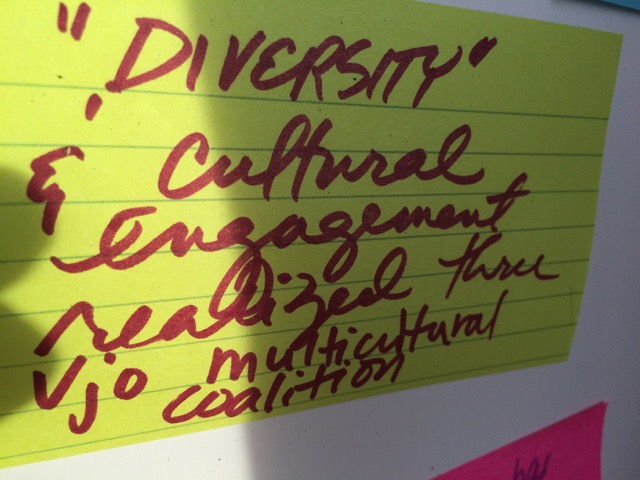 "DIVERSITY"
& Cultural
engagement
realized thru
Vjo multicultural
coalition